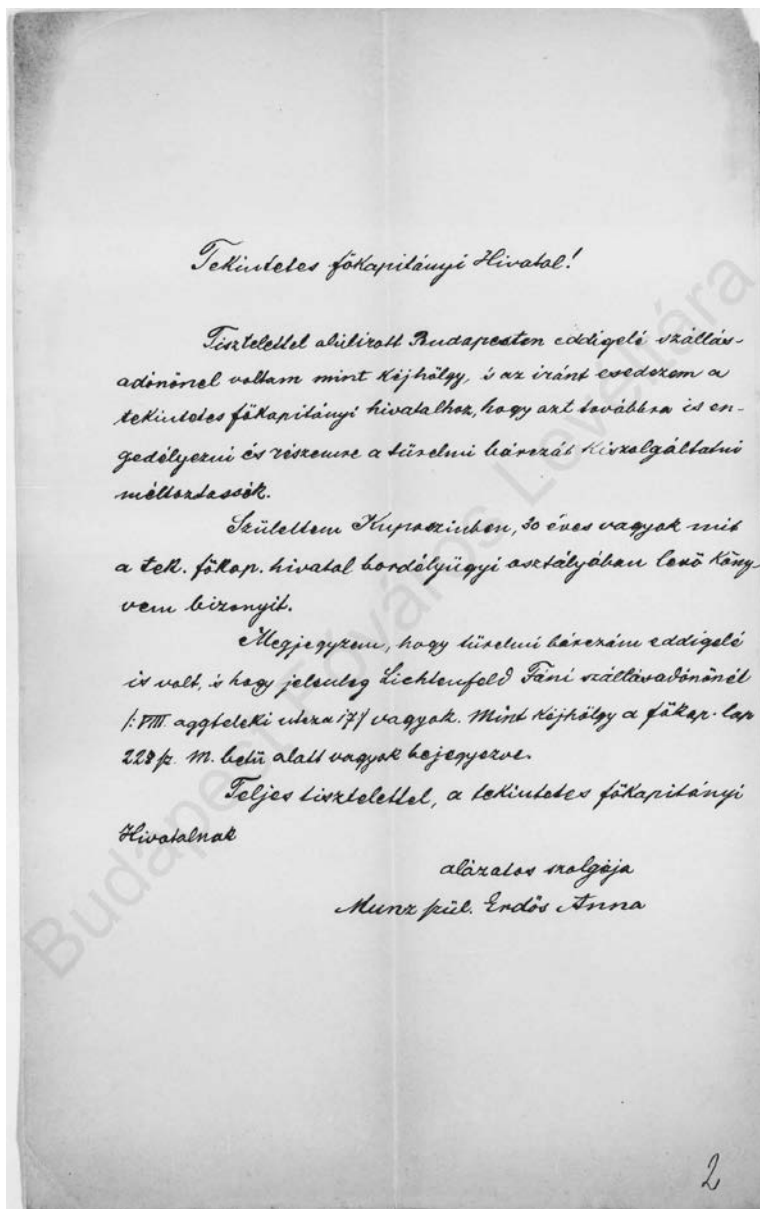 Tekintetes főkapitányi Hivatal!
Tisztelettel alúlirott Budapesten eddigelé szállás-
adónőnél voltam mint kéjhölgy, és az iránt esedezem a
tekintetes főkapitányi hivatalhoz, hogy azt továbbra is en-
gedélyezni és részemre a türelmi bárczát kiszolgáltatni
méltoztassék.
Születtem 30 éves vagyok mit
a tek. főkap. hivatal bordélyügyi osztályában levő köny-
vem bizonyit.
Megjegyzem, hogy türelmi bárczám eddigelé
is volt, és hogy jelenleg Lichtenfeld Fáni szállásadónőnél
/: VIII. aggteleki utcza 17 :/ vagyok. Mint kéjhölgy a főkap. lap
228 M. betű alatt vagyok bejegyezve.
Teljes tisztelettel, a tekintetes főkapitányi
Hivatalnak
alázatos szolgája
Munz szül. Erdős Anna
2
Budapest Főváros Levéltára